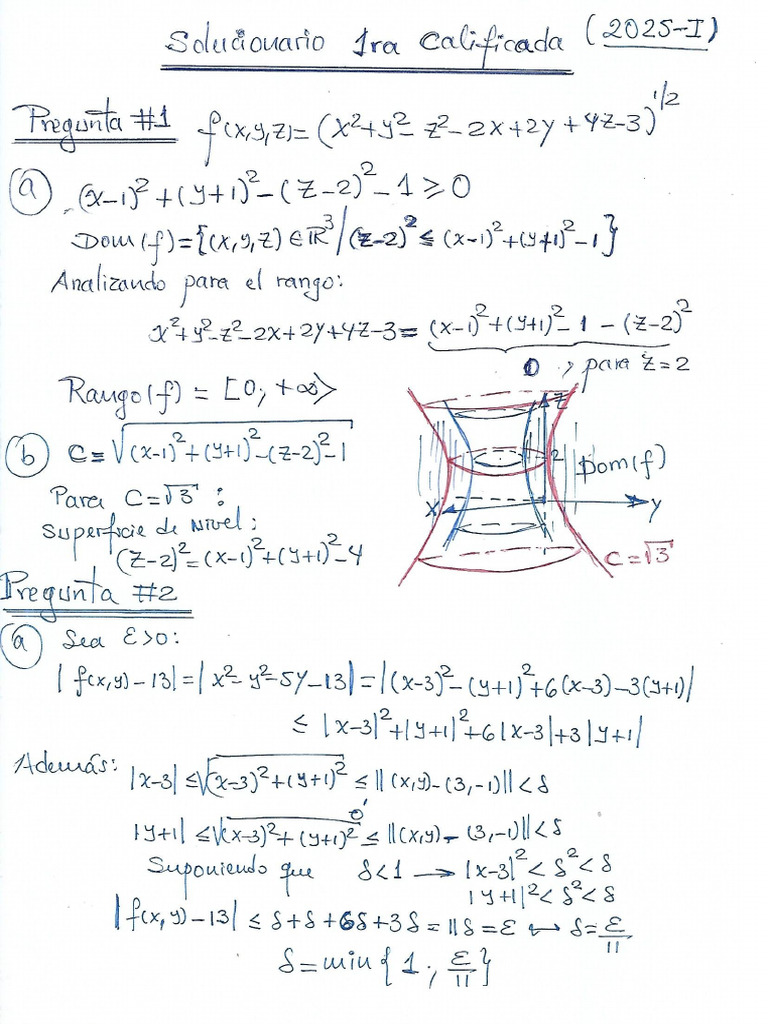 Solucionario 1ra Calificada (2025-I)
Pregunta #1 f(x,y,z)=(x²+y²-z²-2x+2y+4z-3)^1/2
(a) (x-1)²+(y+1)²-(z-2)²-1≥0
Dom(f)={(x,y,z)∈ℝ³/(z-2)²≤(x-1)²+(y+1)²-1}
Analizando para el rango:
x²+y²-z²-2x+2y+4z-3=(x-1)²+(y+1)²-1-(z-2)²
0, para z=2
Rango(f)=[0;+∞>
(b) C=√(x-1)²+(y+1)²-(z-2)²-1
Para C=√3:
Superficie de Nivel:
(z-2)²=(x-1)²+(y+1)²-4
z
2
Dom(f)
x
y
C=√3
Pregunta #2
(a) Sea ε>0:
|f(x,y)-13|=|x²-y²-5y-13|=|(x-3)²-(y+1)²+6(x-3)-3(y+1)|
≤|x-3|²+|y+1|²+6|x-3|+3|y+1|
Además: |x-3|≤√(x-3)²+(y+1)²≤||(x,y)-(3,-1)||<δ
|y+1|≤√(x-3)²+(y+1)²≤||(x,y)-(3,-1)||<δ
Suponiendo que δ<1→|x-3|²<δ²<δ
|y+1|²<δ²<δ
|f(x,y)-13|≤δ+δ+6δ+3δ=11δ=ε↔δ=ε/11
δ=min{1;ε/11}